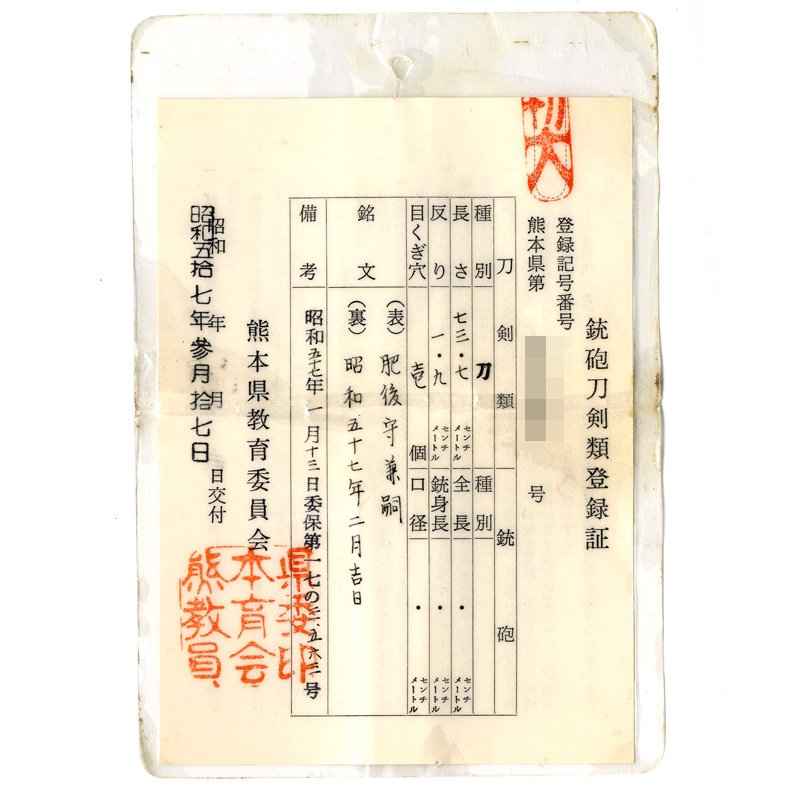 銃砲刀剣類登録証
登録記号番号
熊本県第 号
刀剣類 銃砲
種別 刀 種別
長さ 七三・七 センチメートル 全長 ・ センチメートル
反り 一・九 センチメートル 銃身長 ・ センチメートル
目くぎ穴 壱個 口径 ・ センチメートル
銘文
(表) 肥後守兼嗣
(裏) 昭和五十七年二月吉日
備考
昭和五七年一月十三日委保第一七の三、五六二号
熊本県教育委員会
昭和 年 月 日交付
昭和五拾七年参月拾七日
県委印
本育会
熊教員